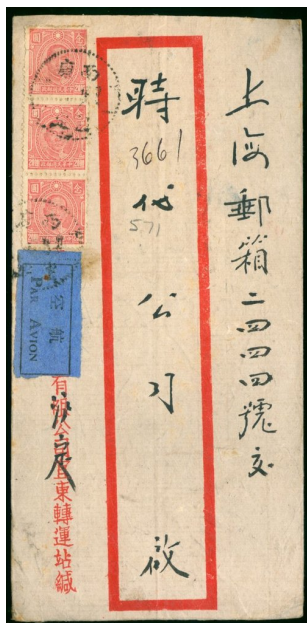 上海郵箱二四四四號交
時代公司 啟
3661
571
航空
PAR AVION
東轉運站緘